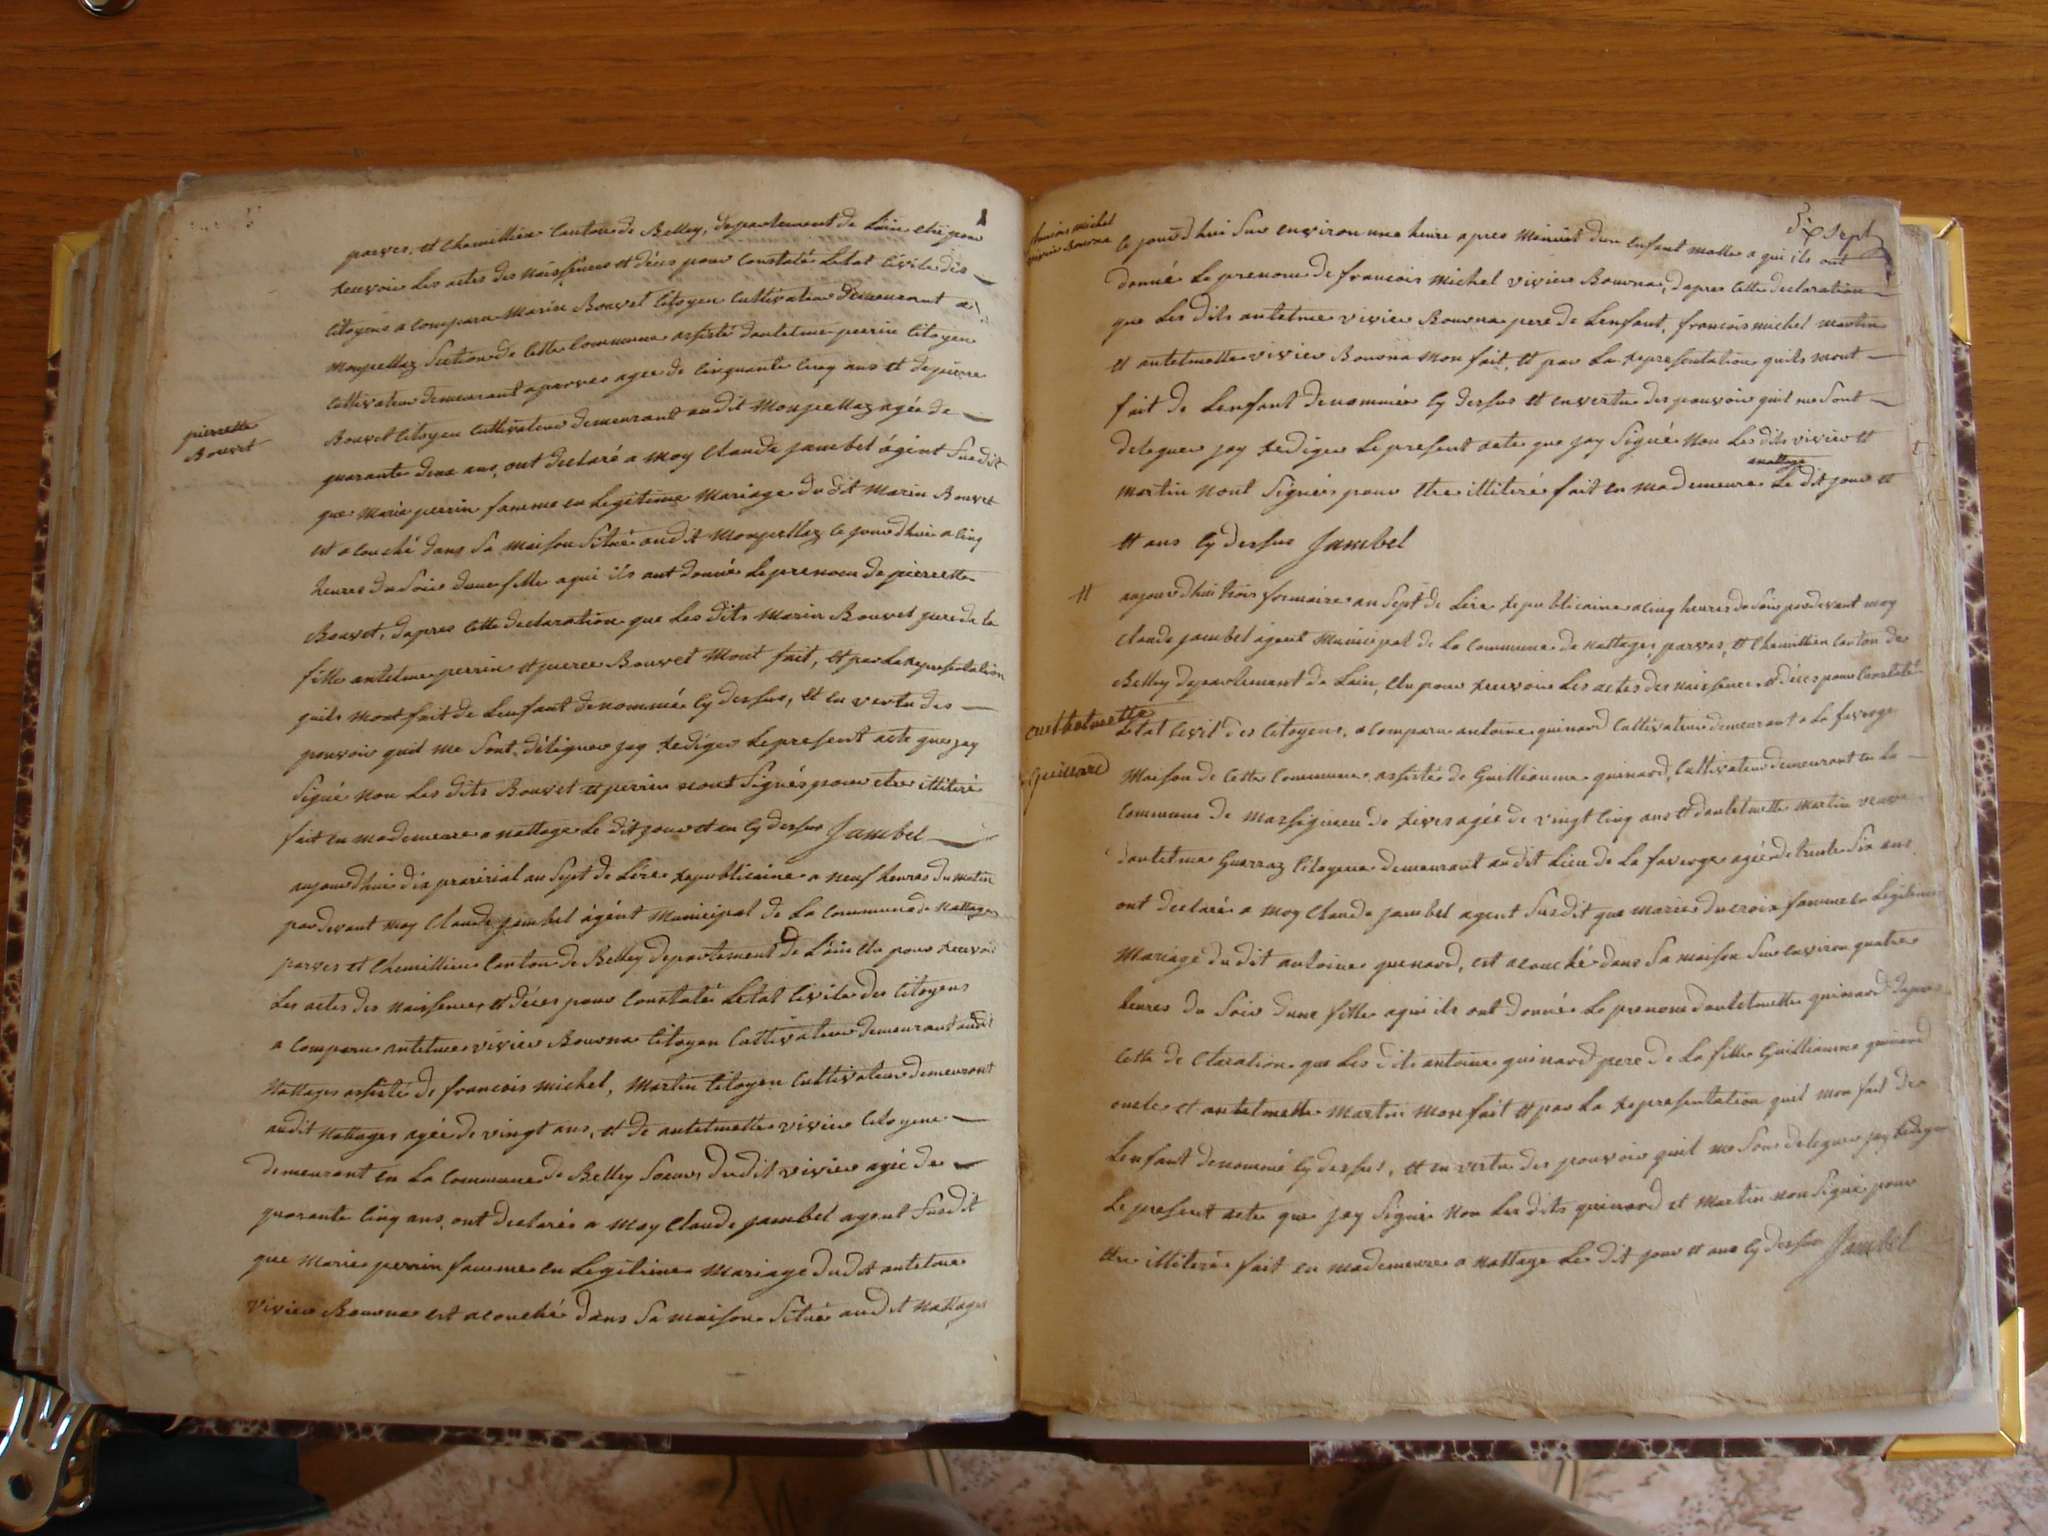 parves, et Chemillieu Canton de Belley, departement de Lain elu pour
recevoir Les actes des Naissences et déces pour Constaté Letat Civile des
Citoyens a Comparu Marin Bouvet Citoyen Cultivateur Demeurant a
Monpellaz Section de Cette Commune assisté dantelme perrin Citoyen
Cultivateur demeurant a parves agee de Cinquante Cinq ans et de pierre
Bouvet Citoyen Cultivateur demeurant audit Monpellaz agée de
pierrette
Bouvet
quarante deux ans, ont declaré a moy Claude jambel ágént Susdit
que Marie perrin famme en Legitime Mariage du dit Marin Bouvet
est acouché dans Sa maison Sitné audit Monpellaz Ce jourdhui a Cinq
heures du Soir dune fille a qui ils ont donné Le prenom de pierrette
Bouvet, dapres Cette declaration que Les dits Marin Bouvet pere de la
fille antelme perrin et pierre Bouvet Mont fait, et par La representation
quils mont fait de Lenfant denommé Cy dessus, et en vertu des
pouvoir quil me Sont déléguer jay redigér Le present acte que jay
Signé non Les dits Bouvet et perrin nont Signés pour etre illitéré
fait en ma demeure a nattage Le dit jour et an Cy dessus Jambel
aujourdhui dix prairial an Sept de Lére republicaine a neuf heures du Matin
pardevant moy Claude jambel ágént Municipal de La Commune de Nattages
parves et Chemillieu Canton de Belley departement de Lain elu pour recevoir
Les actes des Naissences et déces pour Constaté Letat Civile des Citoyens
a Comparu antelme vivier Bouvna Citoyen Cultivateur demeurant audit
Nattages assisté de francois michel, Martin Citoyen Cultivateur demeurant
audit Nattages agée de vingt ans, et de antelmette vivier Citoyene
demeurant en La Commune de Belley Soeur, dudit vivier agée de
quarante Cinq ans, ont declarés a moy Claude jambel agent Susdit
que Marie perrin famme en Legitime Mariage dudit antelme
vivier Bouvna est acouché dans Sa maison Sitné audit Nattages
Dix sept
francois michel
vivier Bouvna
Ce jourdhui Sur environ une heure apres Minuit dun Enfant malle a qui ils ont
donné Le prenom de francois Michel vivier Bouvna, dapres Cette declaration
que Les dits antelme vivier Bouvna pere de Lenfant, francois michel martin
et antelmette vivier Bouvna Mon fait, et par La representation quils mont
fait de Lenfant denommé Cy dessus et en vertu des pouvoir quil me Sont
deleguer jay rediger Le present acte que jay Signé Non Les dits vivier et
martin nont Signés pour etre illitéré fait en ma demeure a nattage Le dit jour et
et ans Cy dessus Jambel
aujourdhui trois formaire an Sept de Lére republicaine a Cinq heures du Soir pardevant moy
Claude jambel ágent Municipal de La Commune de Nattages, parves, et Chemillieu Canton de
Belley departement de Lain, elu pour recevoir Les actes des Naissences et déces pour Constaté
anthelmette
Guinard
Letat Civil des Citoyens, a Comparu antoine guinard Cultivateur demeurant a La faverge
Maison de Cette Commune, assisté de Guilliaume guinard, Cultivateur demeurant en La
Commune de Massignieu de rives agée de vingt Cinq ans et dantelmette martin veuve
dantelme Guerraz Citoyene demeurant au dit Lieu de La faverge agée de trente Six ans
ont declaré a moy Claude jambel agent Susdit que marie ducroix famme en Legitime
Mariage du dit antoine guinard, est acouché dans Sa maison Sur environ quatre
heures du Soir dune fille a qui ils ont donné Le prenom dantelmette guinard dapres
Cette declaration que Les dits antoine guinard pere de La fille Guilliaume guinard
oncle et antelmette Martin Mon fait et par La representation quil mon fait de
Lenfant denommé Cy dessus, et en vertu des pouvoir quil me Sons deleguer jay rediger
Le present acte que jay Signé Non Les dits guinard et Martin non Signé pour
etre illitéré fait en ma demeure a nattage Le dit jour et ans Cy dessus Jambel